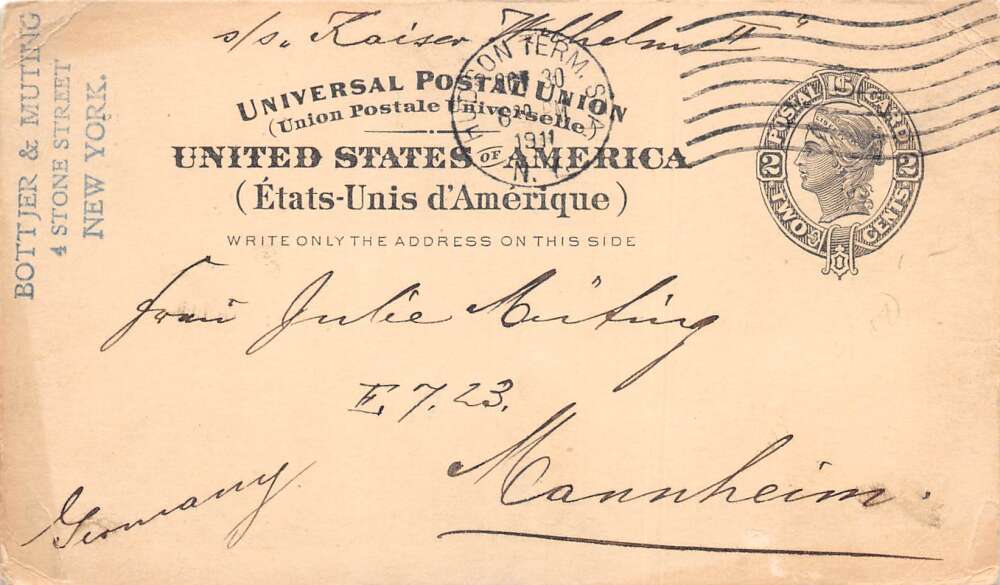 s/s. Kaiser Wilhelm II"
BOTTJER & MUTING
4 STONE STREET
NEW YORK.
HUDSON TERM. STA.
OCT 30
1911
N.Y.
UNIVERSAL POSTAL UNION
(Union Postale Universelle)
UNITED STATES OF AMERICA
(États-Unis d'Amérique)
WRITE ONLY THE ADDRESS ON THIS SIDE
U.S. POSTAL CARD
2 2
TWO CENTS
Frau Julie Müting
E. 7. 23.
Mannheim.
Germany